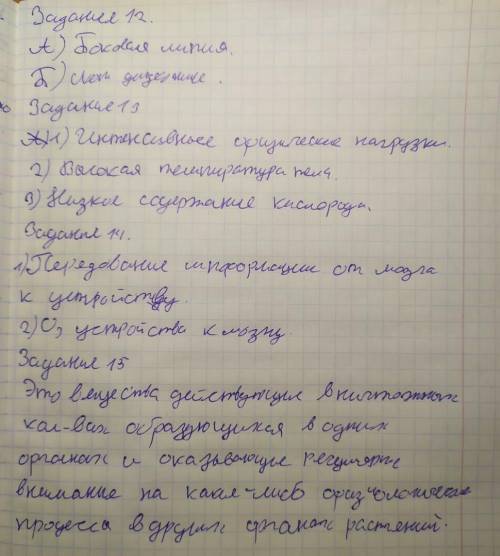 Задание 12.
А) Боковая линия.
Б)
Задание 13
1) Интенсивные физические нагрузки.
2) Высокая температура тела.
3) Низкое содержание кислорода.
Задание 14.
1) Передование информации от мозга
к устройству.
2) От устройства к мозгу.
Задание 15
Это вещества действующие в ничтожных
кол-вах образующихся в одних
органах и оказывающие
внимание на какие-либо физиологические
процесса в других органах растений.